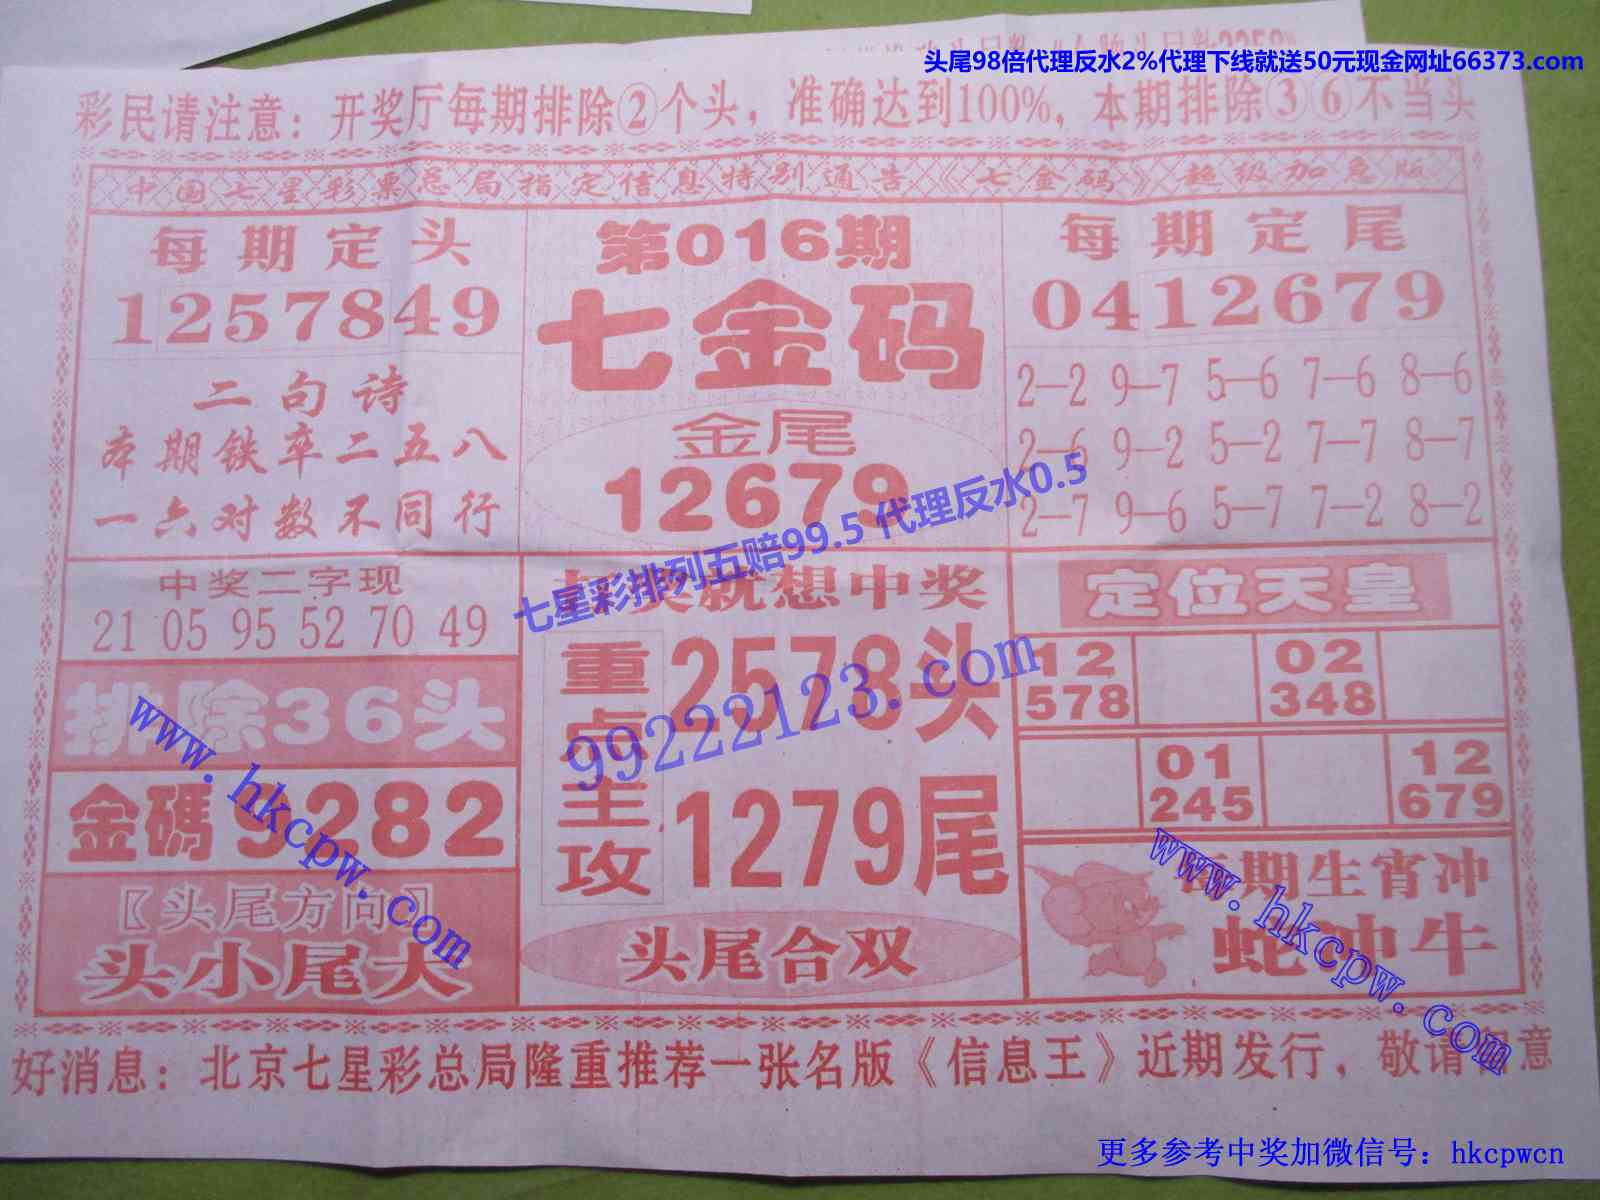 头尾98倍代理反水2%代理下线就送50元现金网址66373.com
彩民请注意：开奖厅每期排除②个头，准确达到100%，本期排除③⑥不当头
中国七星彩票总局指定信息特别通告《七金码》超级加急版
每期定头
1257849
二句诗
本期铁卒二五八
一六对数不同行
第016期
七金码
金尾
12679
每期定尾
0412679
2—2 9—7 5—6 7—6 8—6
2—6 9—2 5—2 7—7 8—7
2—7 9—6 5—7 7—2 8—2
七星彩排列五赔99.5 代理反水0.5
中奖二字现
21 05 95 52 70 49
排除36头
金碼9282
〖头尾方向〗
头小尾大
奖就想中奖
重点主攻
2578头
1279尾
头尾合双
99222123.com
定位天皇
12
578
02
348
01
245
12
679
每期生宵冲
蛇冲牛
www.hkcpw.com
www.hkcpw.com
好消息：北京七星彩总局隆重推荐一张名版《信息王》近期发行，敬请留意
更多参考中奖加微信号：hkcpwcn